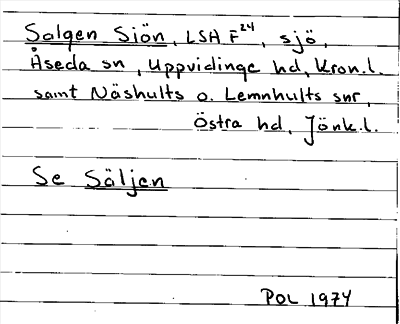 Salgen Siön, LSA F24, sjö,
Åseda sn, Uppvidinge hd, Kron.l.
samt Näshults o. Lemnhults snr,
Östra hd, Jönk.l.
Se Säljen
POL 1974